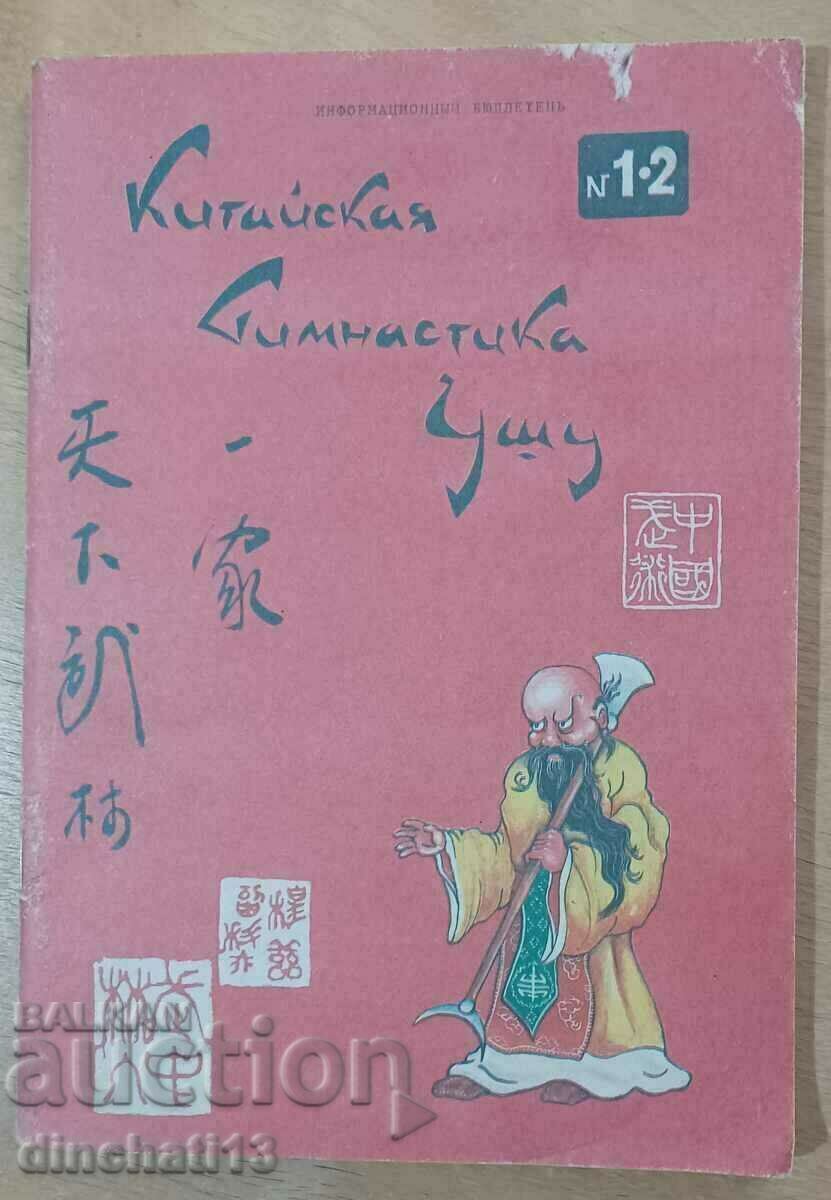 ИНФОРМАЦИОННЫЙ БЮЛЛЕТЕНЬ
N 1·2
Китайская
Гимнастика
Ушу
天下武林
一家
中國
武術
BALKAN
auction
dinchati13